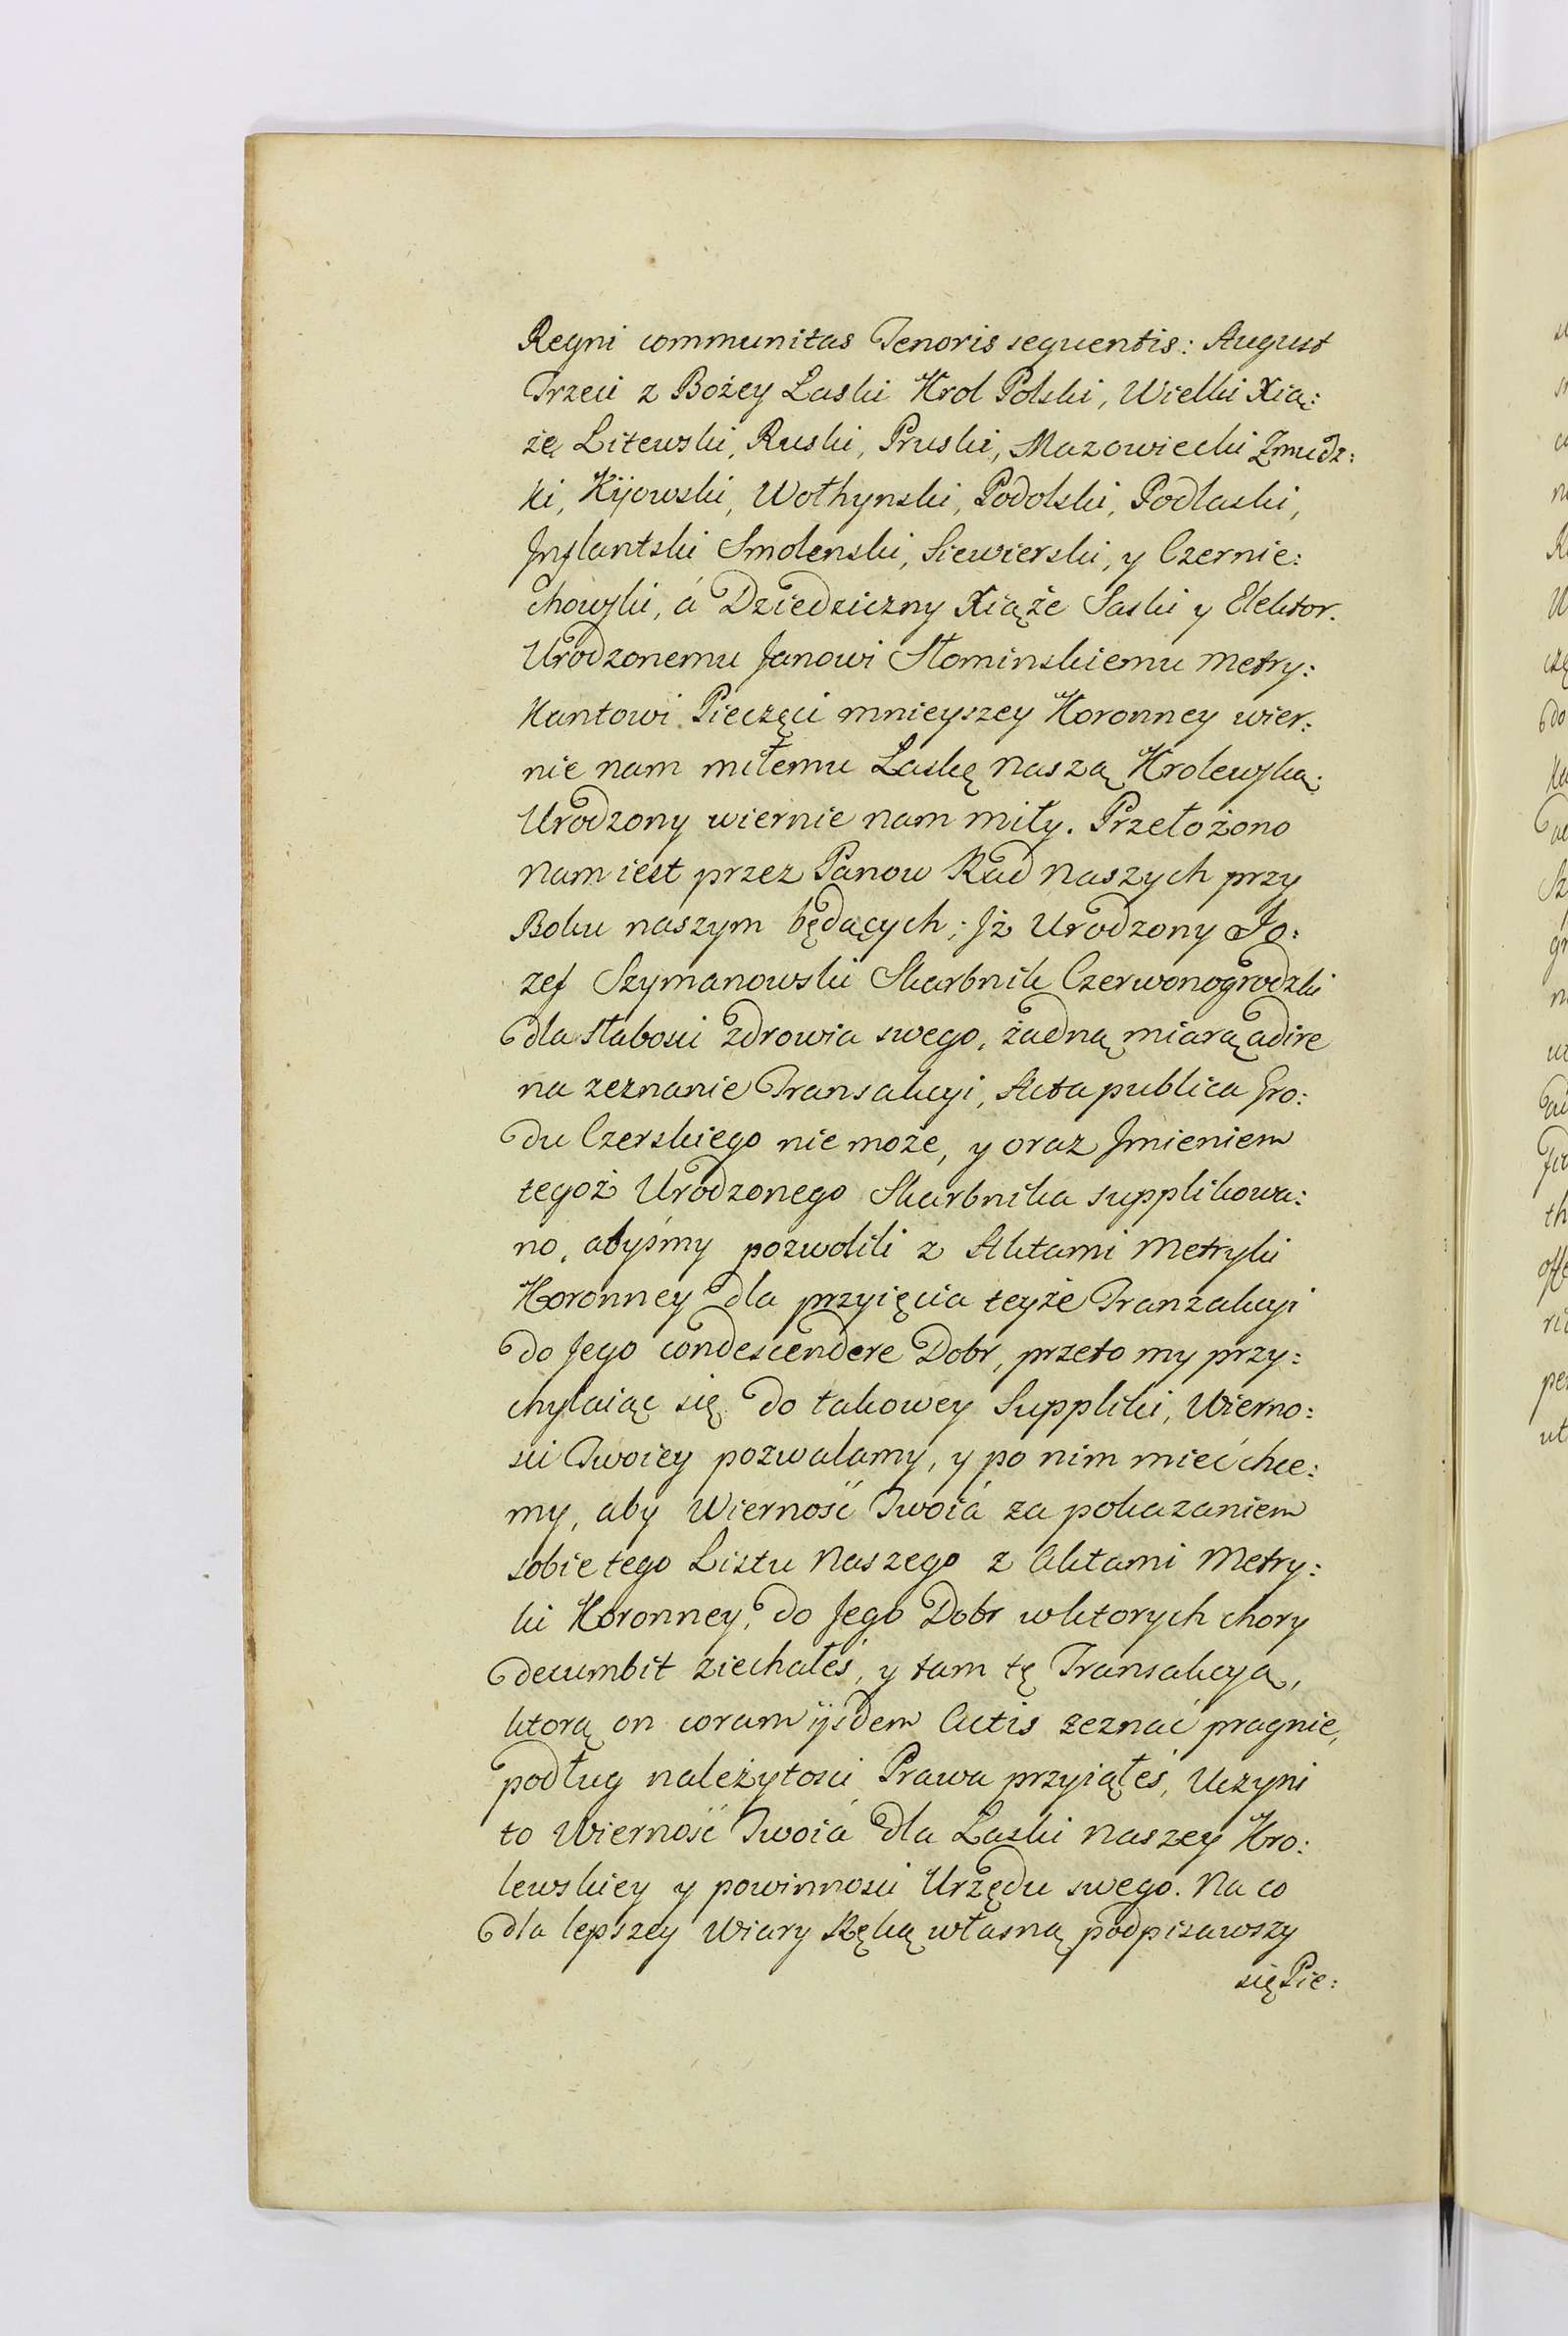 Regni communitas Tenoris sequentis: August
Trzeci z Bożey Łaski Krol Polski, Wielki Xią:
żę Litewski, Ruski, Pruski, Mazowiecki Zmudz:
ki, Kijowski, Wołhynski, Podolski, Podlaski,
Jnflantski Smolenski, Siewierski, y Czernie:
chowski, á Dziedziczny Xiąże Saski y Elektor.
Urodzonemu Janowi Słominskiemu Metry:
kantowi Pieczęci mnieyszey Koronney wier:
nie nam miłemu Łaskę Naszą Krolewską.
Urodzony wiernie nam miły. Przełożono
Nam iest przez Panow Rad Naszych przy
Boku naszym będących; Jż Urodzony Jo:
zef Szymanowski Skarbnik Czerwonogrodzki
dla słabosci zdrowia swego, żadną miarą adire
na zeznanie Transakcyi, Acta publica Gro:
du Czerskiego nie może, y oraz Jmieniem
tegoż Urodzonego Skarbnika supplikowa:
no, abyśmy pozwolili z Aktami Metryki
Koronney dla przyięcia teyże Tranzakcyi
do Jego condescendere Dobr, przeto my przy:
chylaiąc się do takowey Suppliki, Wierno:
sci Twoiey pozwalamy, y po nim mieć chce:
my, aby Wierność Twoiá za pokazaniem
sobie tego Listu Naszego z Aktami Metry:
ki Koronney, do Jego Dobr w ktorych chory
decumbit ziechałeś, y tam tę Transakcyą,
ktorą on coram ijsdem Actis zeznać pragnie,
podług należytosci Prawa przyiąłeś, Uczyni
to Wierność Twoiá dla Łaski Naszey Kro:
lewskiey y powinnosci Urzędu swego. Na co
dla lepszey Wiary Ręką własną podpisawszy
się Pie: